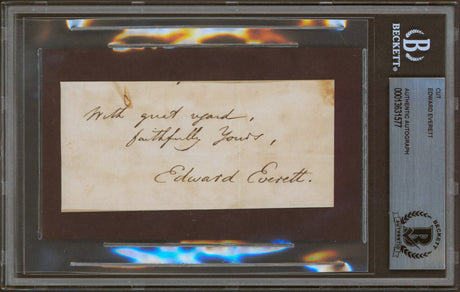 With great regard,
faithfully Yours,
Edward Everett.
BECKETT
CUT
EDWARD EVERETT
AUTHENTIC AUTOGRAPH
0001363 1577
BECKETT
AUTHENTICATED